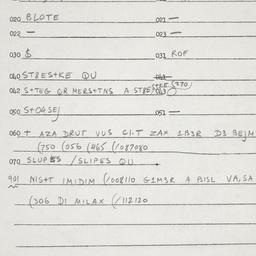 020 BLOTE 021 —
022 — 023 —
030 $ 031 ROF
040 STBES+KE QU 041
042 S+TEG QR MERS+TNS A 043
050 STOGSEJ 051 —
060 + AZA DRUT VUS CI.T ZAX 1B3R D3 BEJM
(750 (056 (465 (/087080
070 SLUPES / SLIPES QU
901 NIS+T IMIDIM (/008110 G1M3R A BISL VA,SA
(306 DI MILAX (/112120